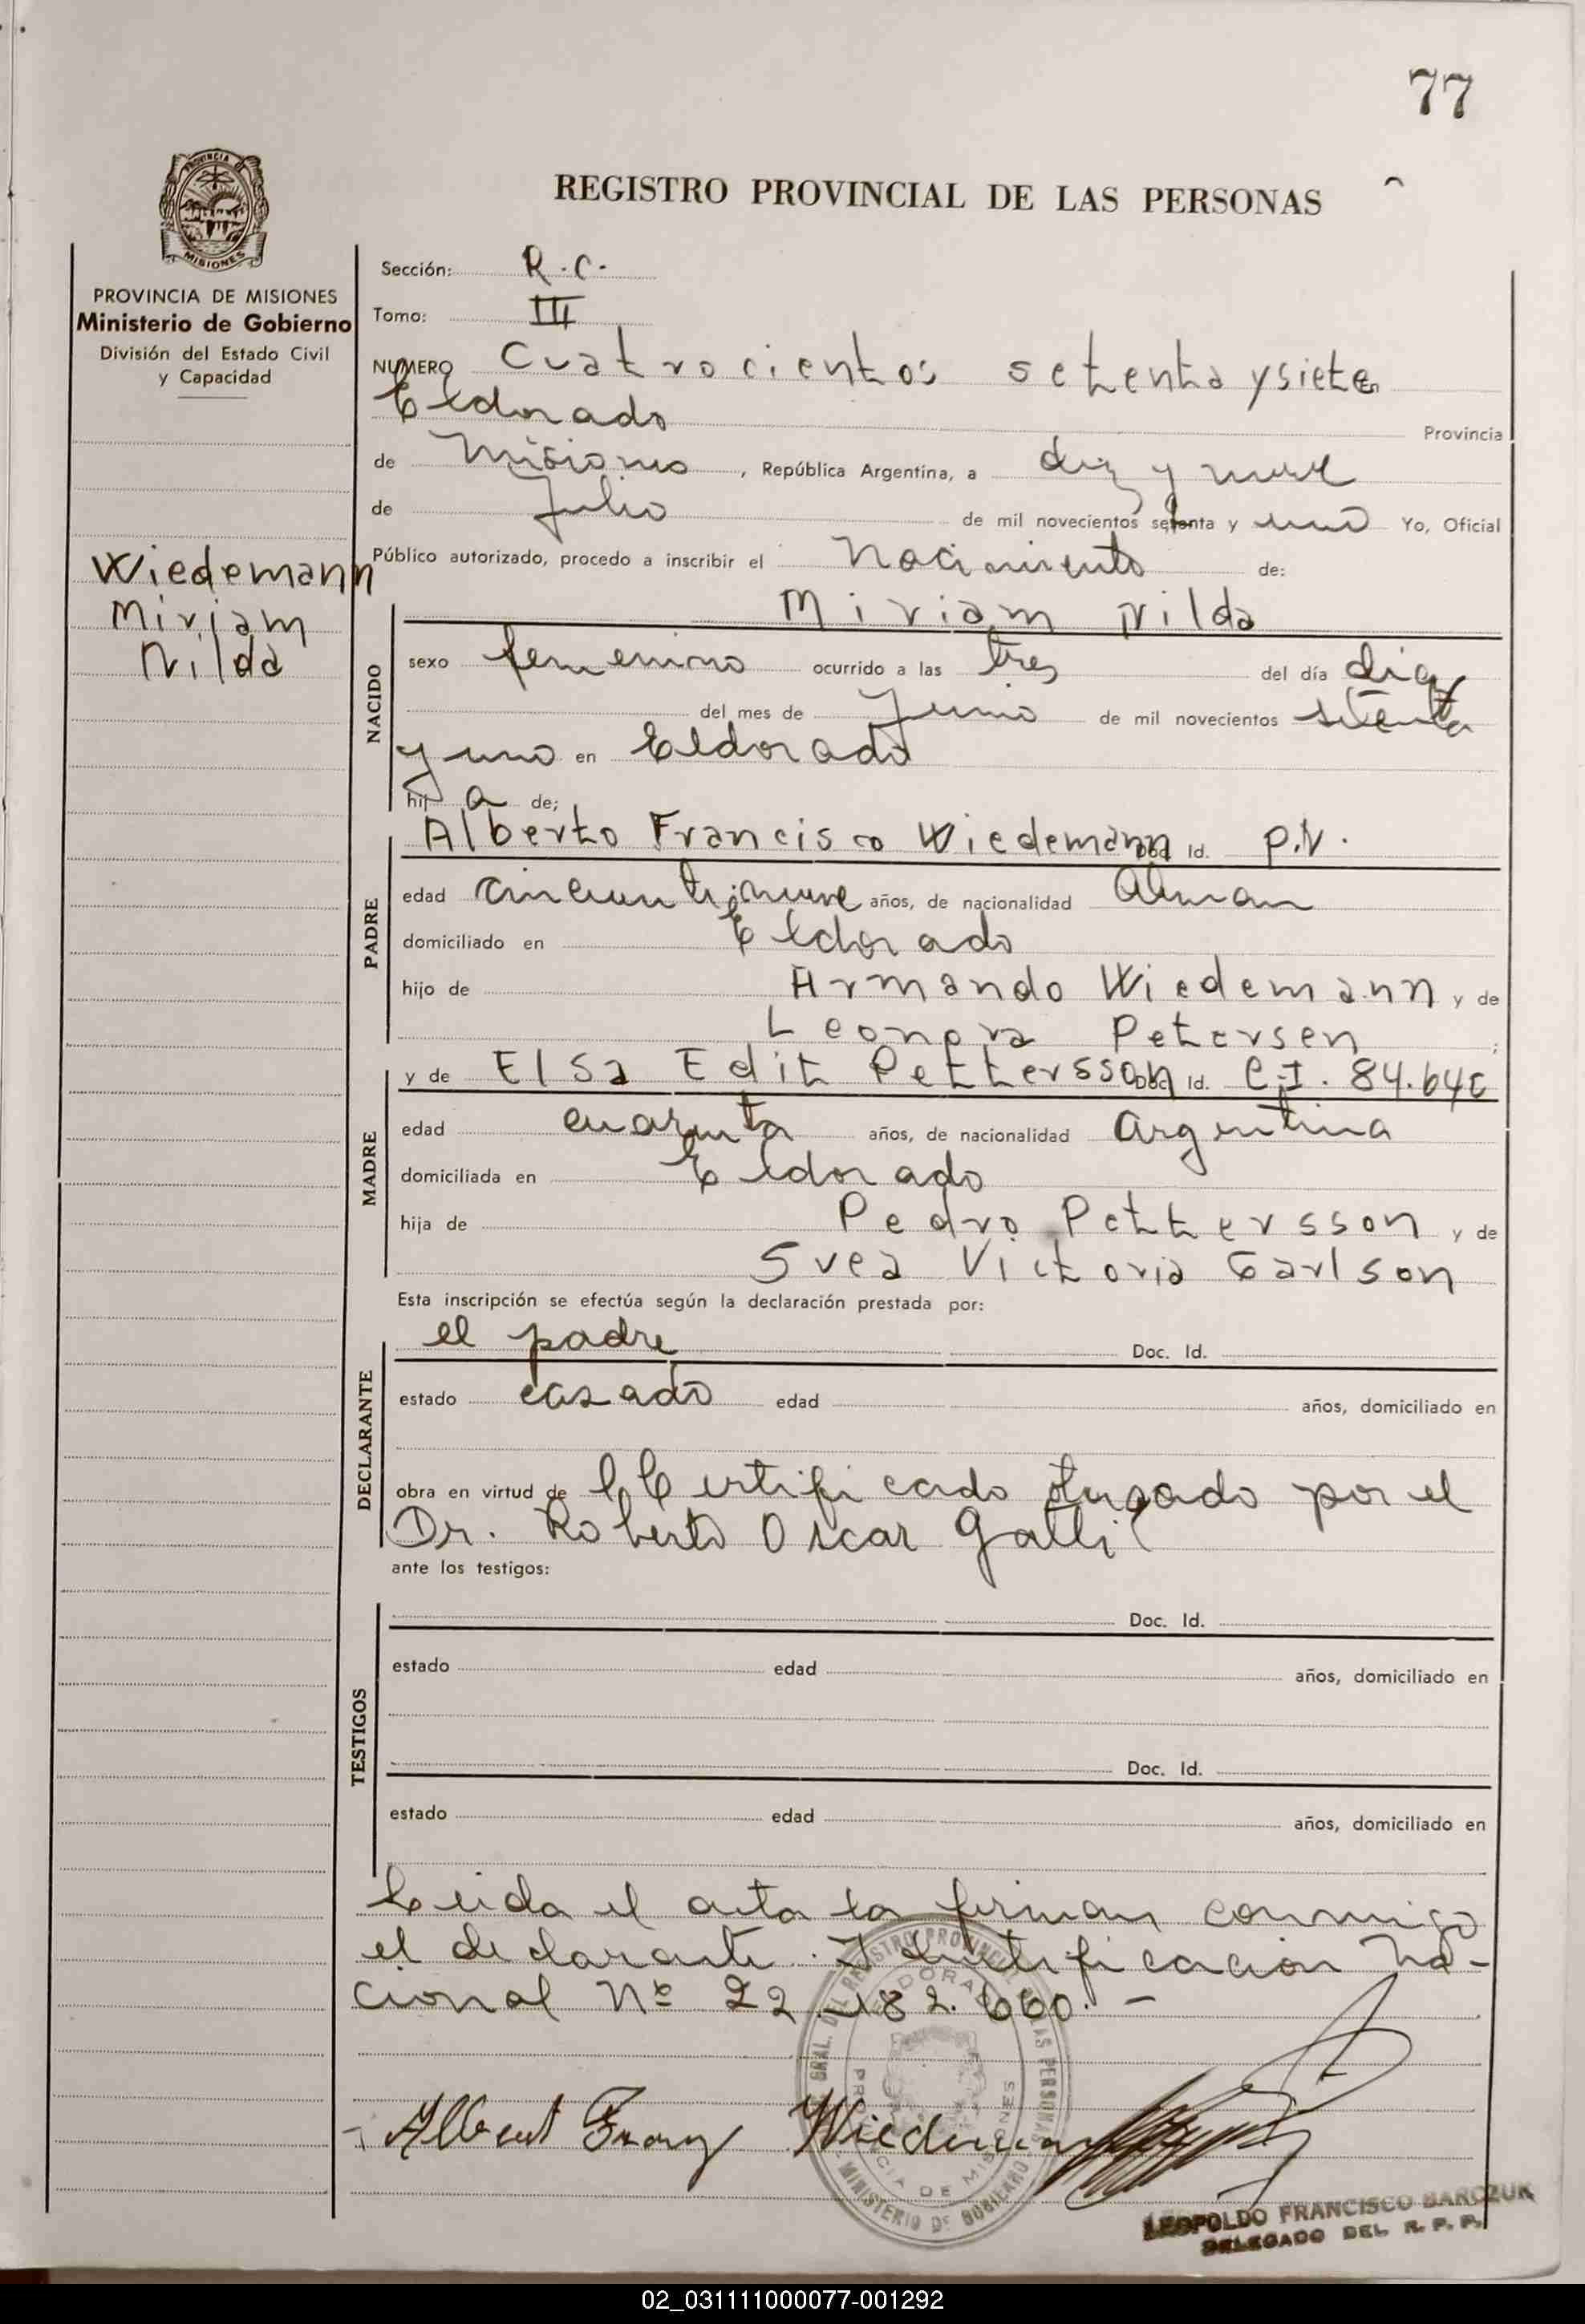 77
REGISTRO PROVINCIAL DE LAS PERSONAS
PROVINCIA DE MISIONES
PROVINCIA DE MISIONES
Ministerio de Gobierno
División del Estado Civil
y Capacidad
Wiedemann
Miriam
Nilda
Sección: R.C.
Tomo: III
NUMERO Cuatrocientos setenta y siete
Eldorado Provincia
de Misiones, República Argentina, a diez y nueve
de Julio de mil novecientos setenta y uno Yo, Oficial
Público autorizado, procedo a inscribir el Nacimiento de:
NACIDO
Miriam Nilda
sexo femenino ocurrido a las tres del día diez
del mes de Junio de mil novecientos setenta
y uno en Eldorado
hij a de;
PADRE
Alberto Francisco Wiedemann Doc. Id. P.N.
edad cincuentinueve años, de nacionalidad Aleman
domiciliado en Eldorado
hijo de Armando Wiedemann y de
Leonora Petersen;
MADRE
y de Elsa Edit Pettersson Doc. Id. C.I. 84.640
edad cuarenta años, de nacionalidad Argentina
domiciliada en Eldorado
hija de Pedro Pettersson y de
Svea Victoria Carlson
Esta inscripción se efectúa según la declaración prestada por:
DECLARANTE
el padre Doc. Id.
estado casado edad años, domiciliado en
obra en virtud de Certificado por el
Dr. Roberto Oscar Galli
ante los testigos:
TESTIGOS
Doc. Id.
estado edad años, domiciliado en
Doc. Id.
estado edad años, domiciliado en
Leida el acta la firman conmigo
el declarante. Identificacion Na-
cional Nº 22.182.660.-
Albert Franz Wiedemann
GRAL. DEL REGISTRO PROVINCIAL DE LAS PERSONAS
ELDORADO
PROVINCIA DE MISIONES
MINISTERIO DE GOBIERNO
LEOPOLDO FRANCISCO BARCZUK
DELEGADO DEL R. P. P.
02_031111000077-001292